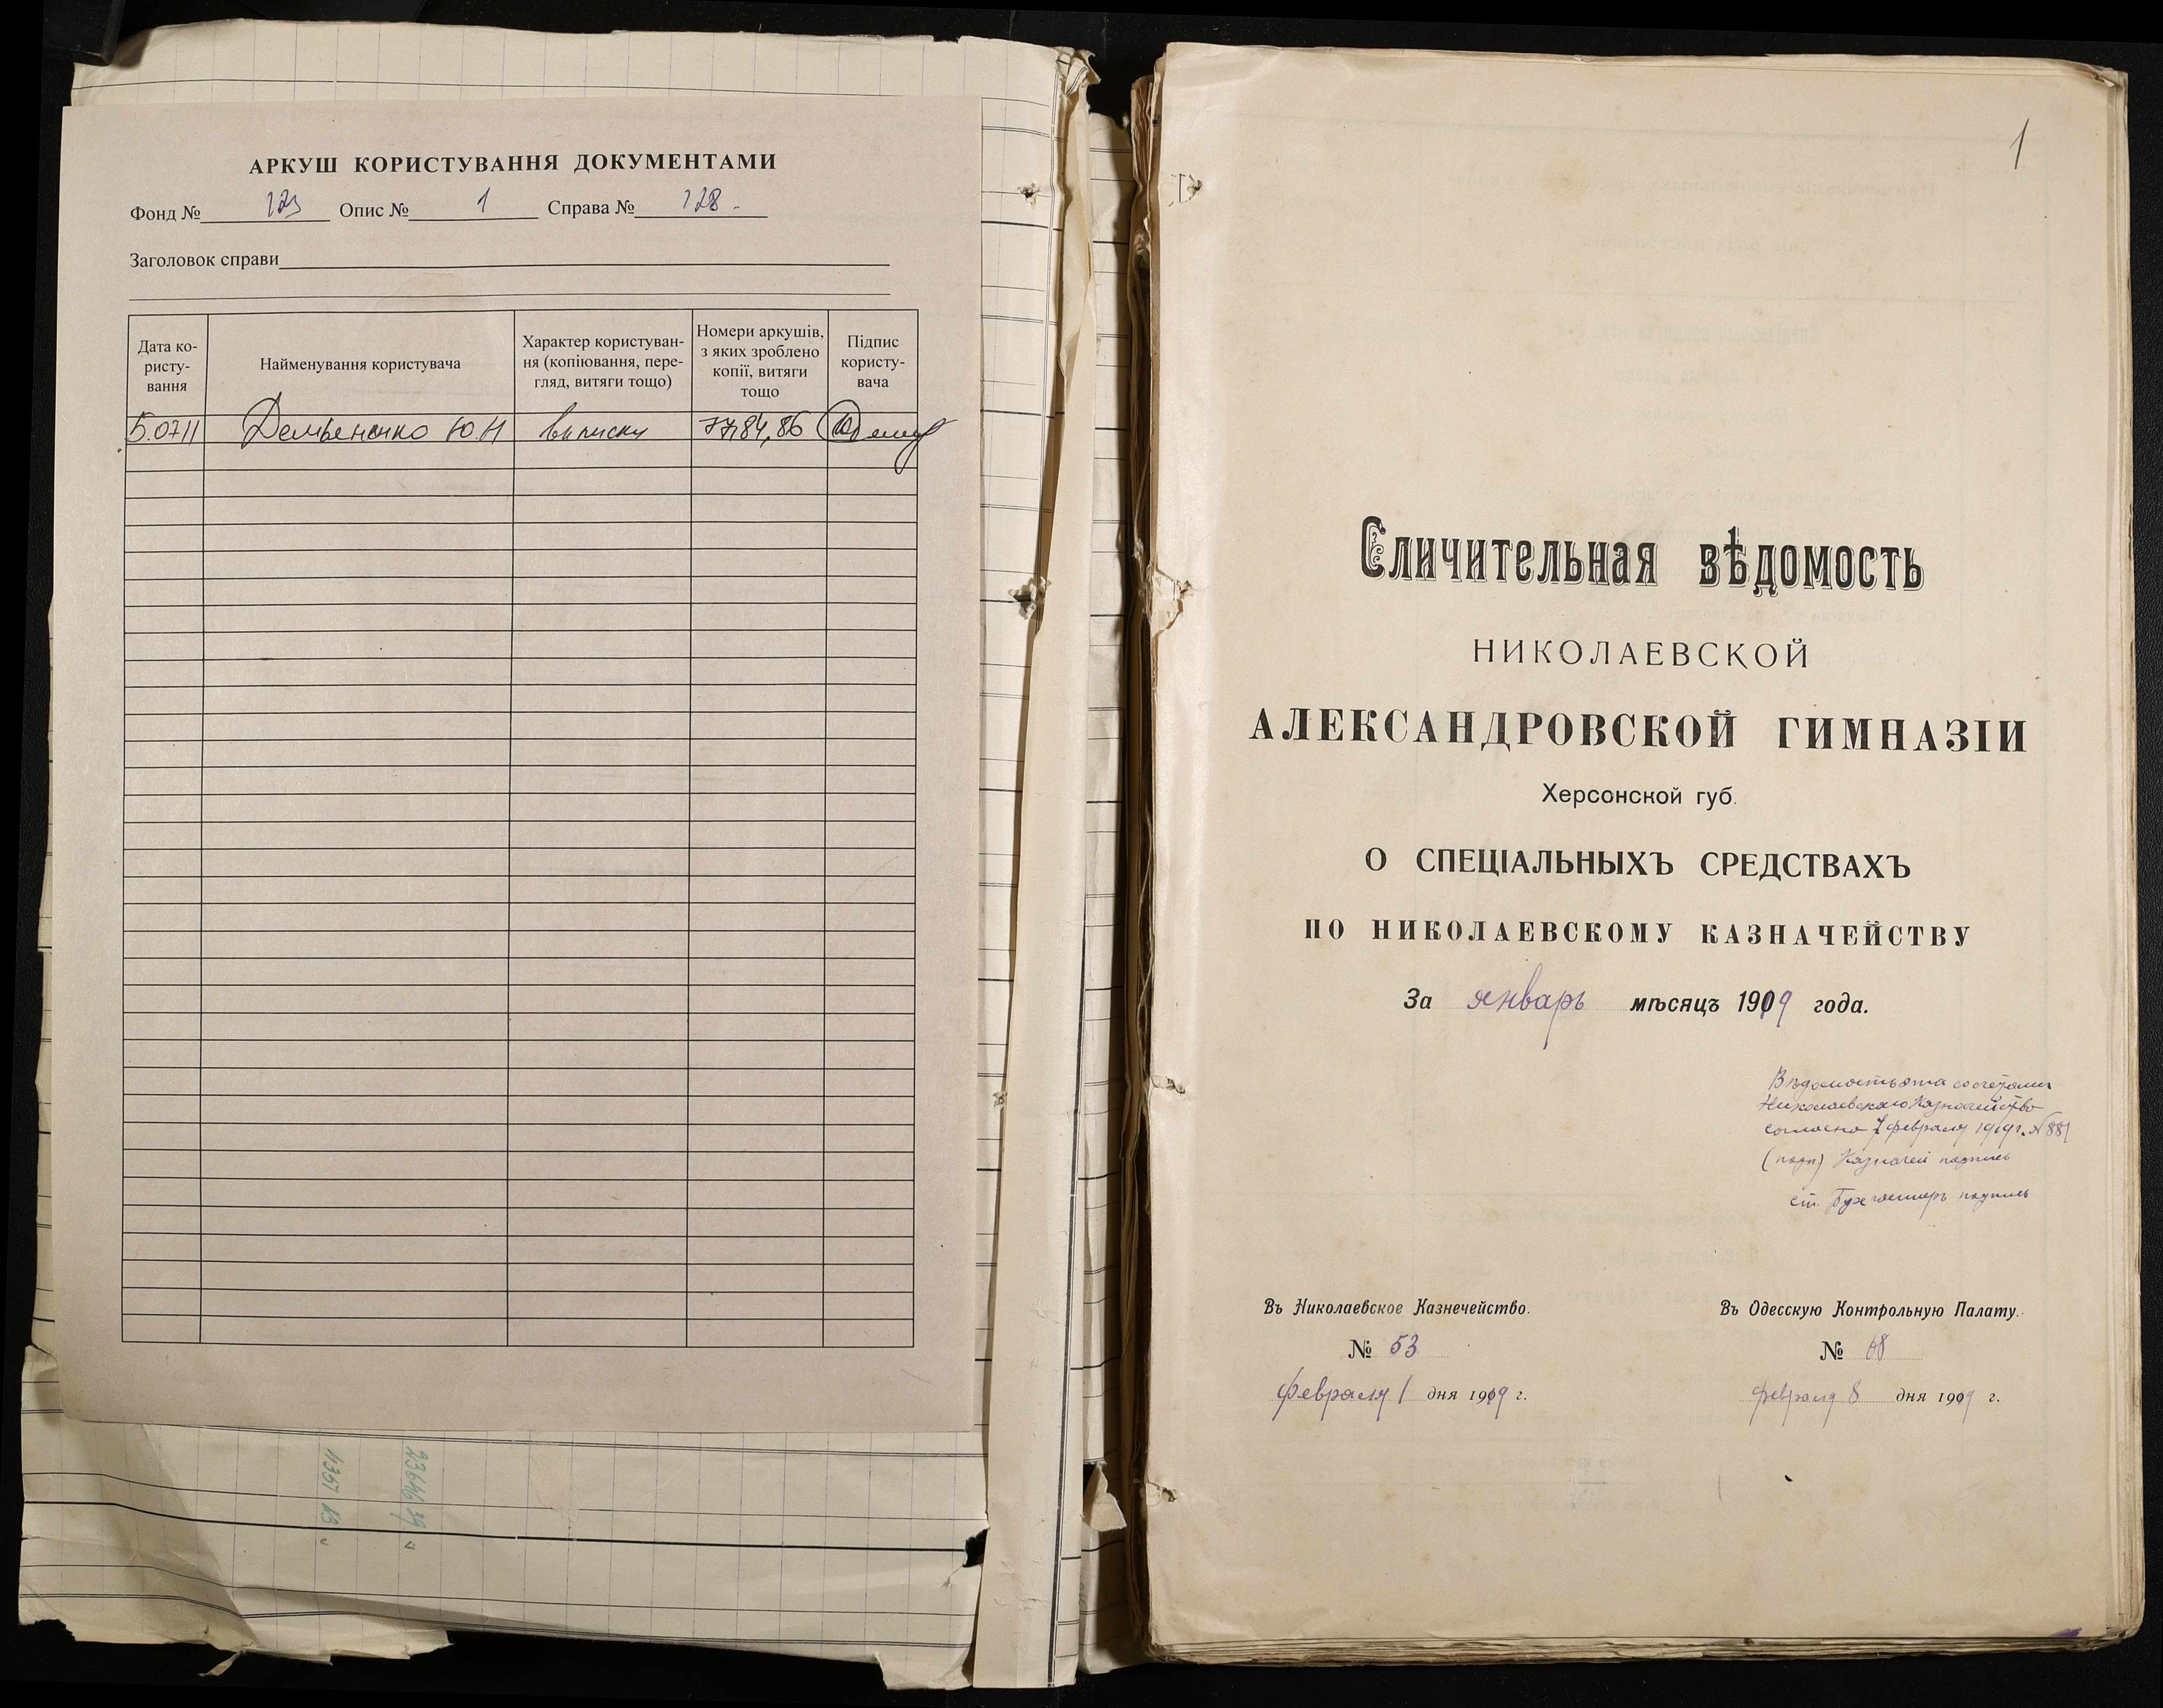 АРКУШ КОРИСТУВАННЯ ДОКУМЕНТАМИ
Фонд № 123 Опис № 1 Справа № 128
Заголовок справи
Дата ко-
ристу-
вання
Найменування користувача
Характер користуван-
ня (копіювання, пере-
гляд, витяги тощо)
Номери аркушів,
з яких зроблено
копії, витяги
тощо
Підпис
користу-
вача
5.0711 Демьененко Ю.Н выписки 77,84,86
1
Сличительная вѣдомость
НИКОЛАЕВСКОЙ
АЛЕКСАНДРОВСКОЙ ГИМНАЗІИ
Херсонской губ.
О СПЕЦІАЛЬНЫХЪ СРЕДСТВАХЪ
ПО НИКОЛАЕВСКОМУ КАЗНАЧЕЙСТВУ
За январь мѣсяцъ 1919 года.
Вѣдомость эта со счетами
Николаевскаго Казначейства
согласна 7 февраля 1919 г. № 881
(подп) Казначей подпись
ст. Бухгалтеръ подпись
Въ Николаевское Казнечейство.
№ 53
февраля 1 дня 1919 г.
Въ Одесскую Контрольную Палату.
№ 68
февраля 8 дня 1919 г.